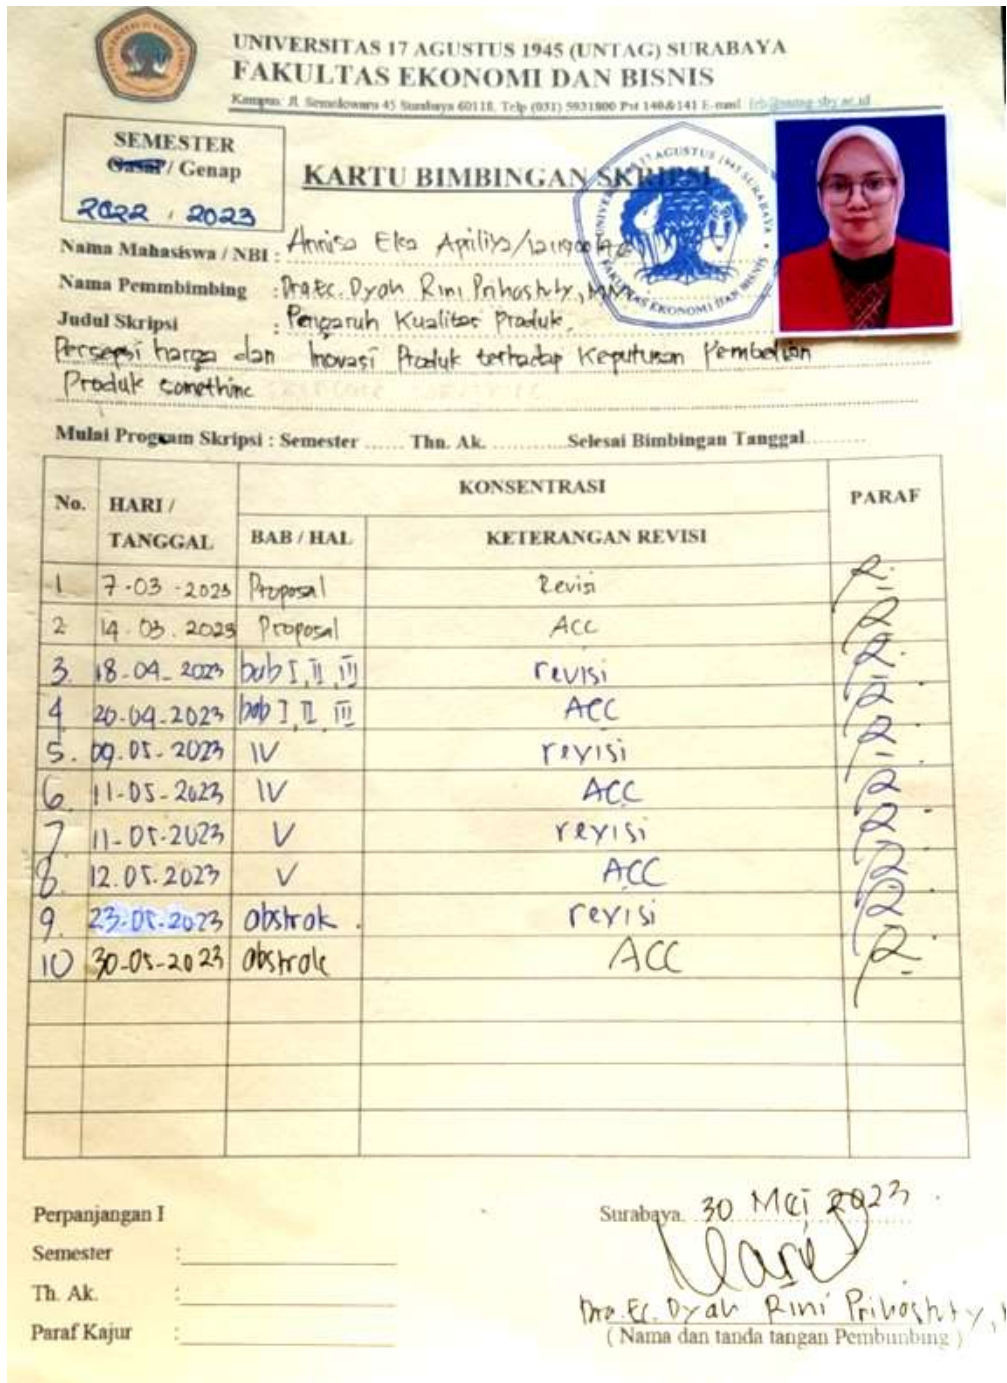 UNIVERSITAS 17 AGUSTUS 1945 (UNTAG) SURABAYA
FAKULTAS EKONOMI DAN BISNIS
Kampus: Jl. Semolowaru 45 Surabaya 60118, Telp (031) 5931800 Pst 140&141 E-mail feb@untag-sby.ac.id
SEMESTER
Gasal / Genap
2022 / 2023
KARTU BIMBINGAN SKRIPSI
Nama Mahasiswa / NBI : Annisa Eka Apriliya/
Nama Pemmbimbing : Dra.Ec. Dyah Rini Prihastuty, MM
Judul Skripsi : Pengaruh Kualitas Produk,
Persepsi harga dan Inovasi Produk terhadap Keputusan Pembelian
Produk somethinc
Mulai Program Skripsi : Semester ...... Thn. Ak. ............ Selesai Bimbingan Tanggal..........
No. HARI / TANGGAL KONSENTRASI PARAF
BAB / HAL KETERANGAN REVISI
1 7-03-2023 Proposal Revisi
2 14.03.2023 Proposal Acc
3. 18-04-2023 bab I, II, III revisi
4 26-04-2023 bab I, II, III ACC
5. 09.05-2023 IV revisi
6. 11-05-2023 IV ACC
7 11-05-2023 V revisi
8. 12.05.2023 V ACC
9. 23-05-2023 abstrak . revisi
10 30-05-2023 abstrak ACC
Perpanjangan I
Semester :
Th. Ak. :
Paraf Kajur :
Surabaya, 30 Mei 2023
Dra.Ec. Dyah Rini Prihastuty,
( Nama dan tanda tangan Pembimbing )
UNIVERSITAS 17 AGUSTUS 1945 SURABAYA
FAKULTAS EKONOMI DAN BISNIS